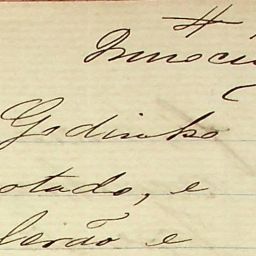 Innoci
Godinho
otado, e
leirão e